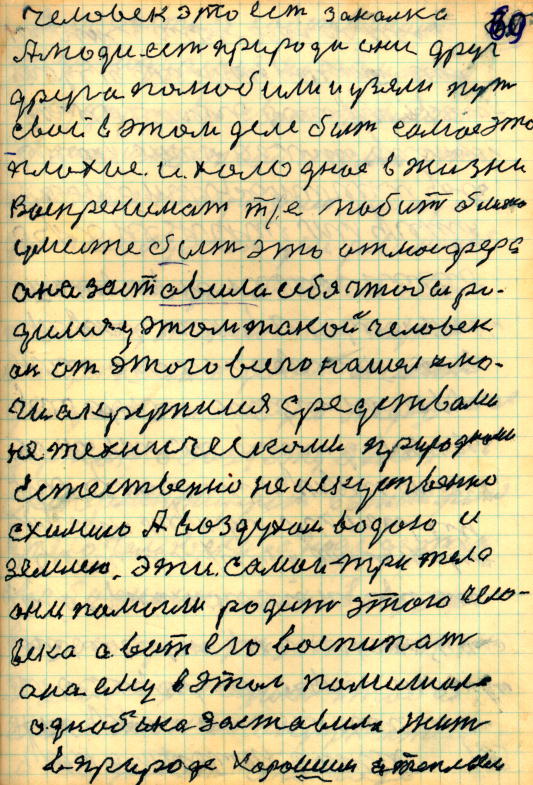 69
человек это ест закалка
А люди ест природи они друг
друга полюбили и узяли пут
свой в этом деле быт самое это
плохое. и холодное в жизни
Воспренимат т/е побит близко
уместе быт это атмосфера
она заставила себя чтобы ро-
дился у этом такой человек
он от этого всего нашел клю-
чи окружился средствами
не техническоми природноми
естественно не искуственно
схимию А воздухом водою и
землею. эти. самои три тела
они помогли родит этого чело-
века а вот его воспитат
она ему в этом помишала
однобока заставила жит
в природе хорошим и теплым